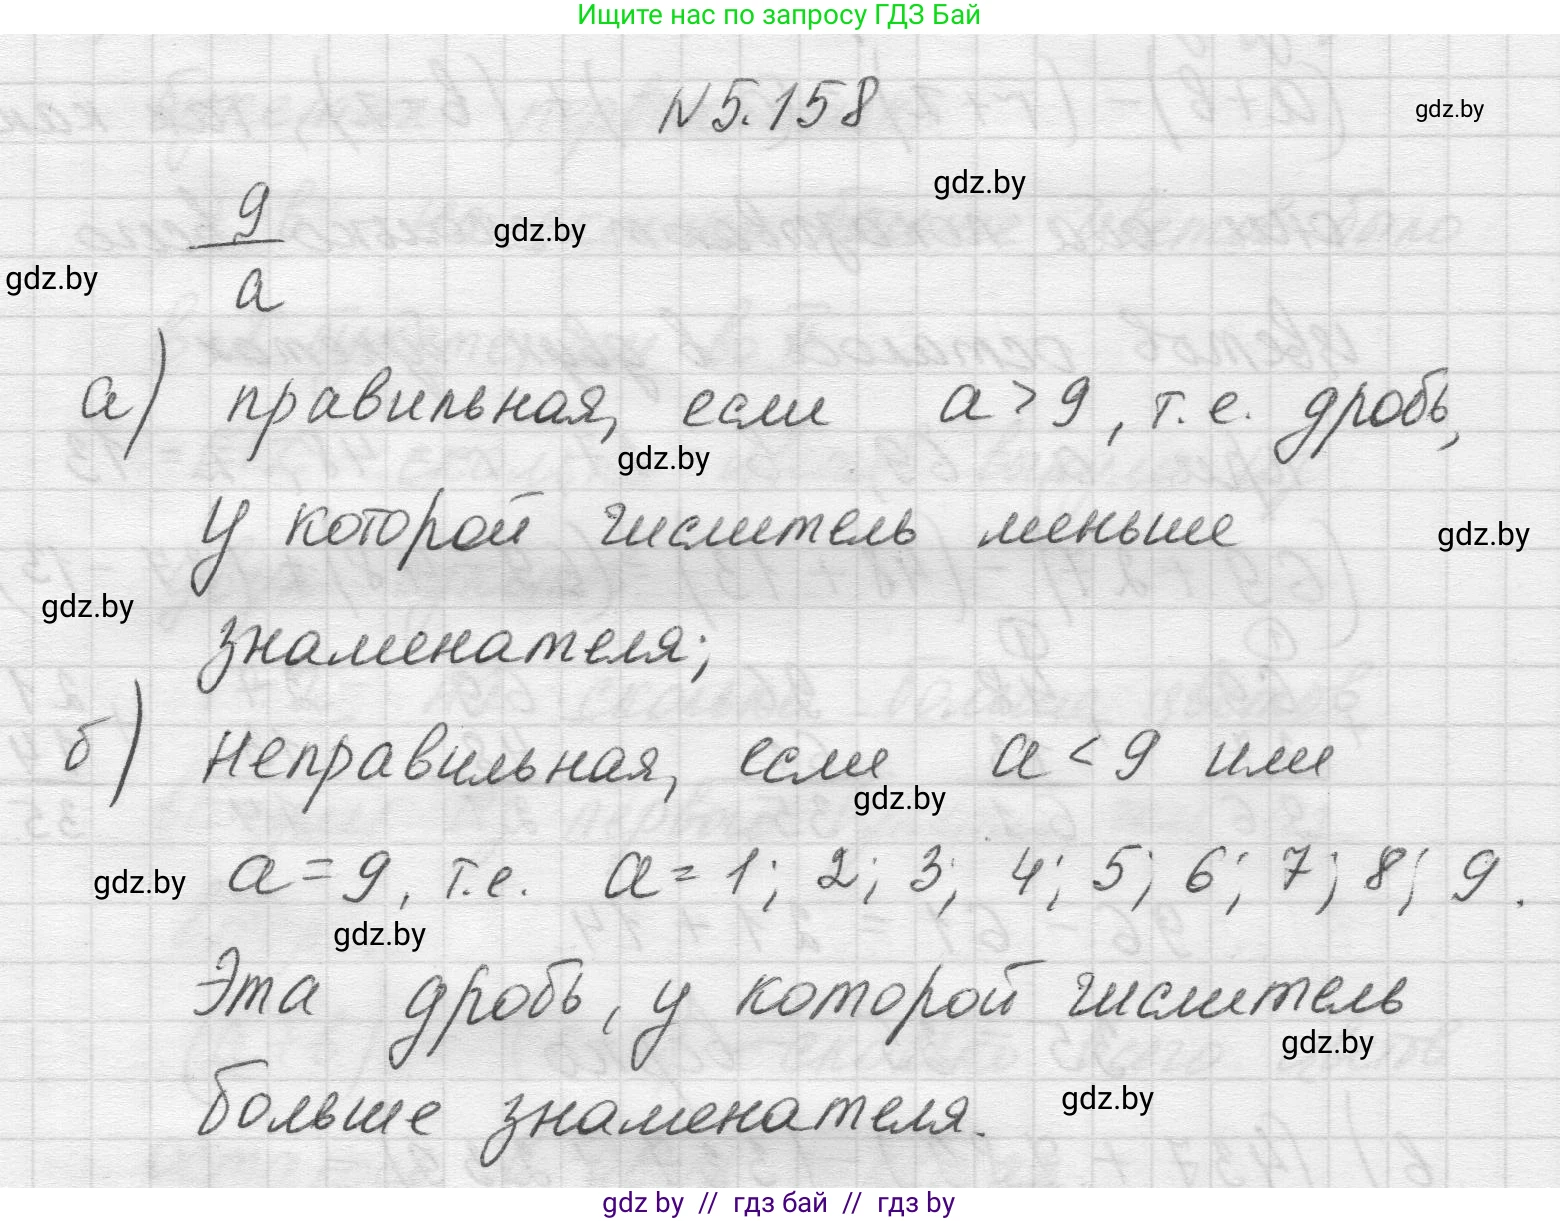 Ищите нас по запросу ГДЗ Бай
N 5.158
gdz.by
gdz.by
9
gdz.by
gdz.by
a
а) правильная, если a > 9, т.е. дробь,
gdz.by
у которой числитель меньше
gdz.by
gdz.by
знаменателя;
б) неправильная, если a < 9 или
gdz.by
gdz.by
a = 9, т.е. a = 1; 2; 3; 4; 5; 6; 7; 8; 9.
gdz.by
Эта дробь, у которой числитель
gdz.by
больше знаменателя.
gdz.by
gdz by // гдз бай // гдз by